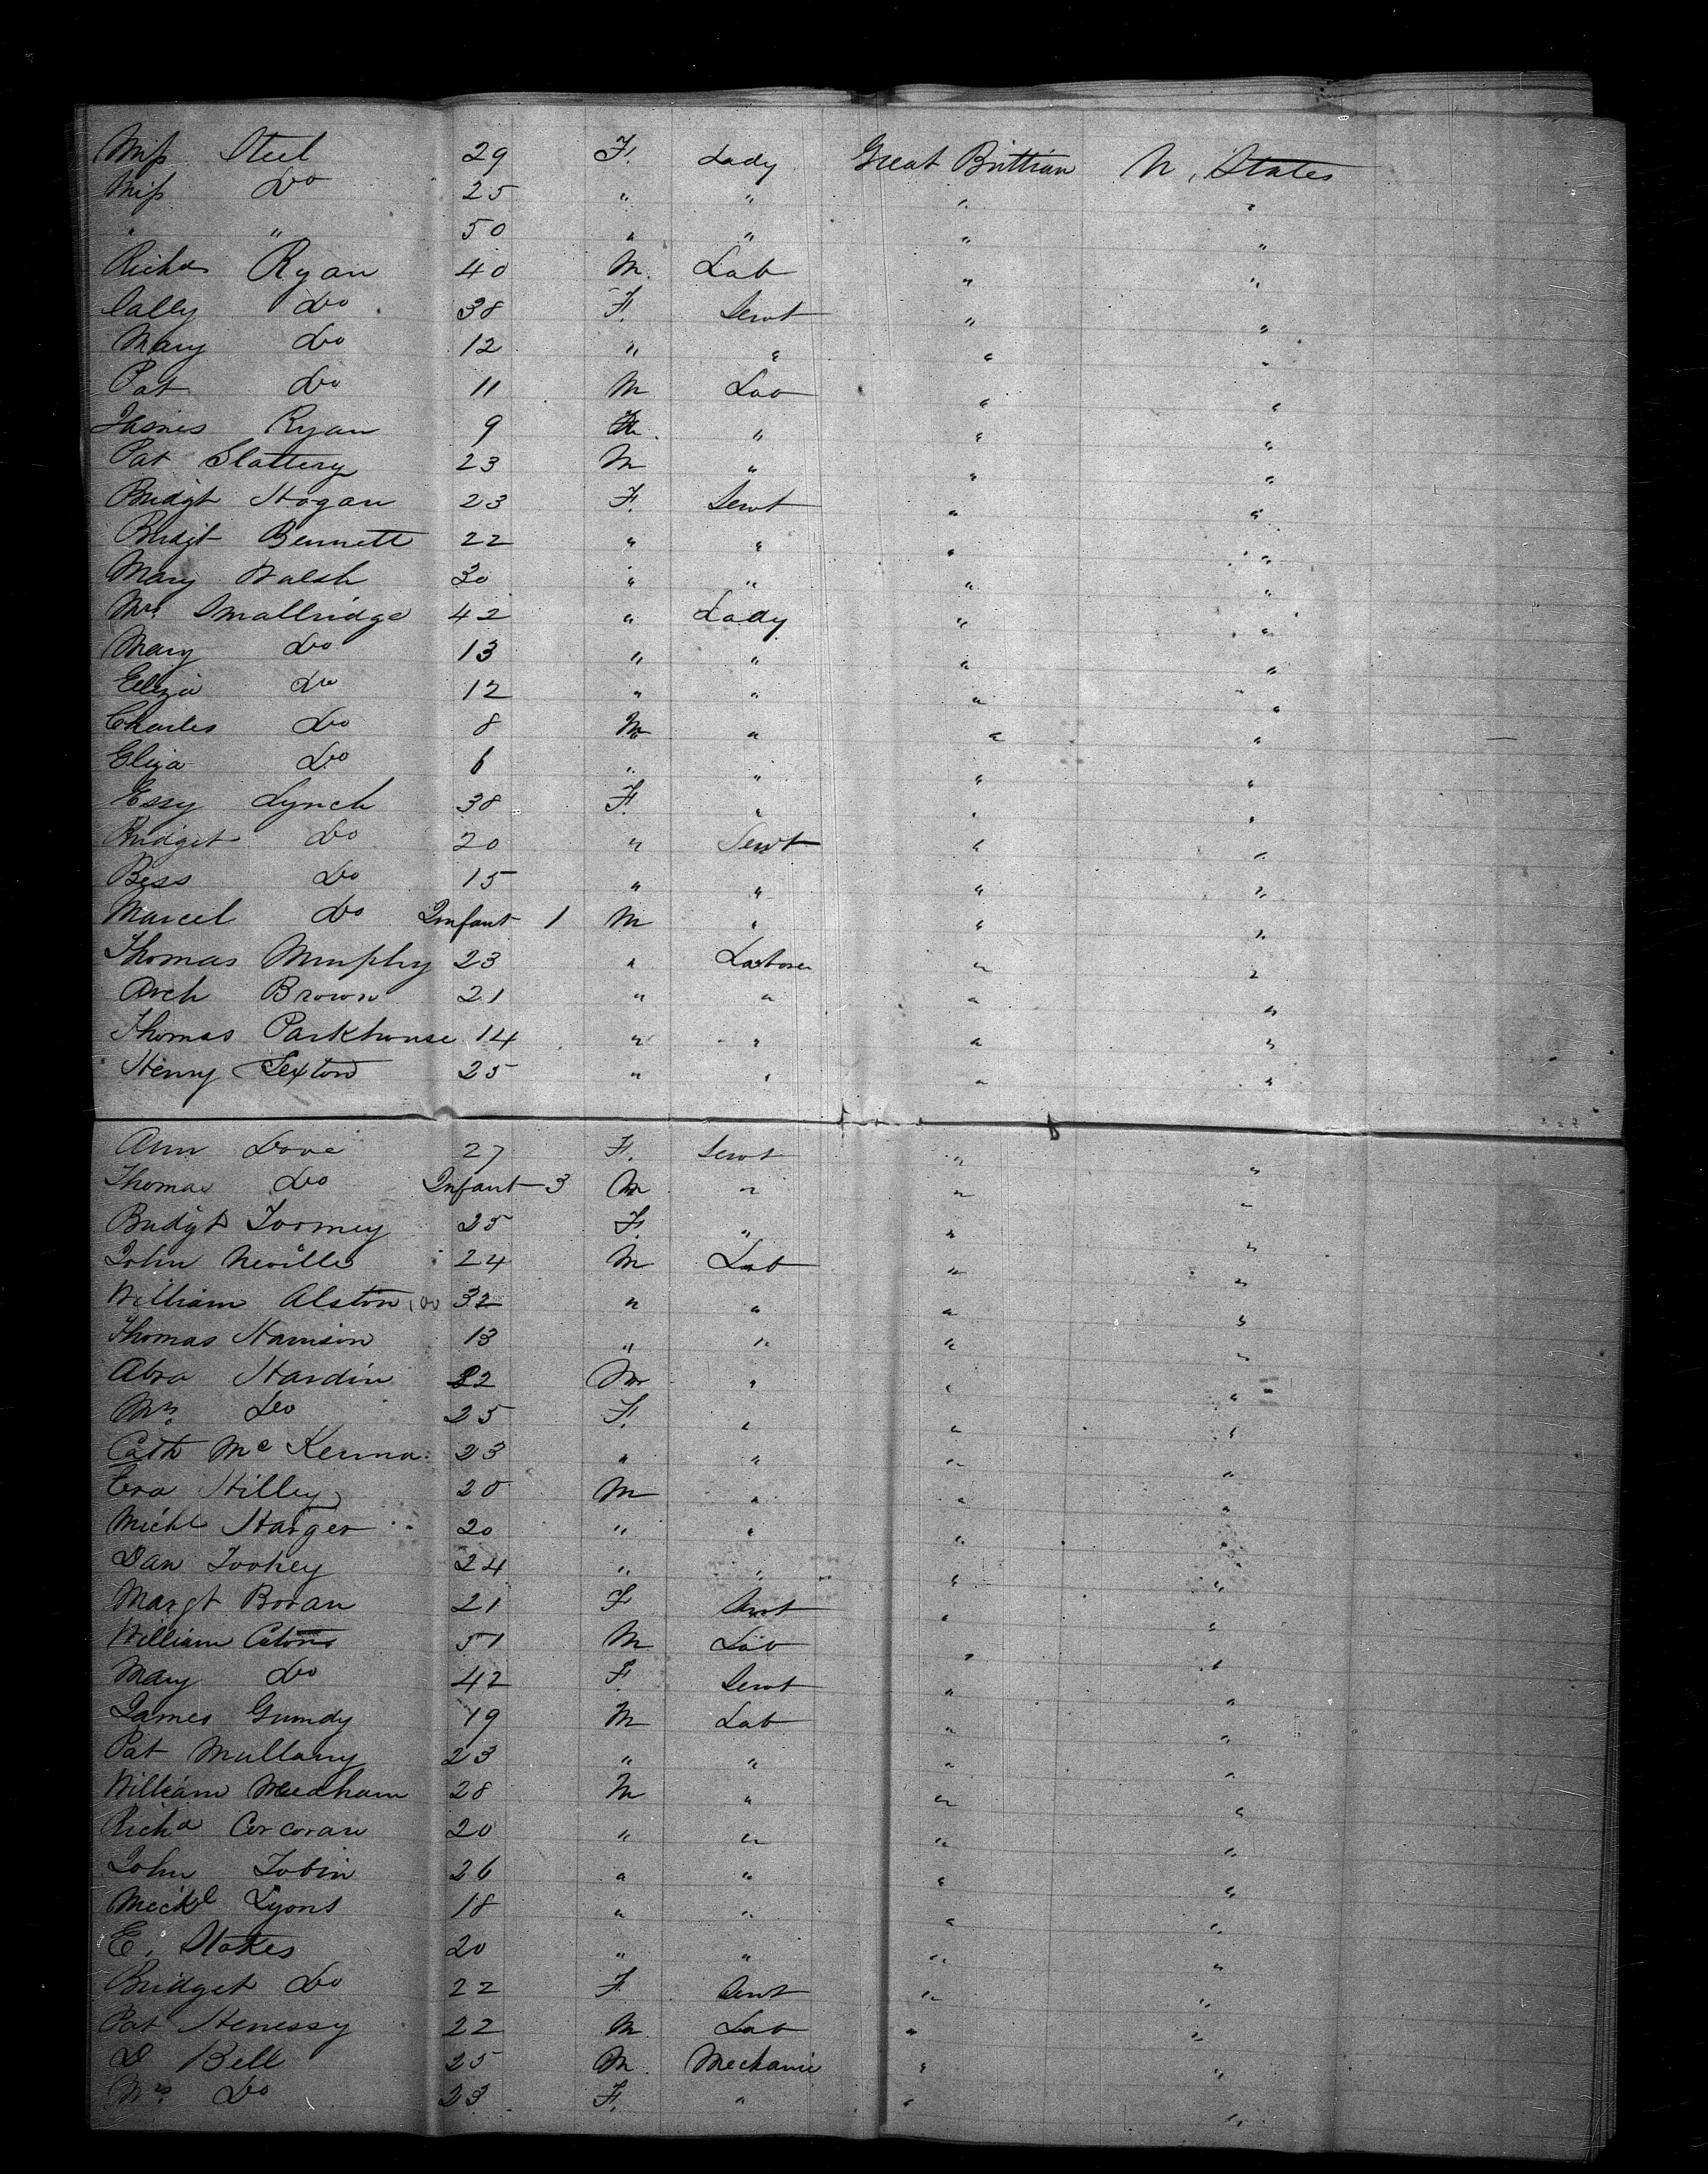 Miss Steel 29 F. Lady Great Brittian U, States
Miss Do 25 " " " "
" " 50 " " " "
Richd Ryan 40 M. Lab " "
Cally Do 38 F. Servt " "
Mary Do 12 " " " "
Pat Do 11 M Lab " "
James Ryan 9 " " "
Pat Slattery 23 M " " "
Bridgt Hogan 23 F. Servt " "
Bridgt Bennett 22 " " " "
Mary Walsh 30 " " " "
Mrs. Smallridge 42 " Lady " "
Mary Do 13 " " " "
Eliza Do 12 " " " "
Charles Do 8 M " " "
Eliza Do 6 " " " "
Essy Lynch 38 F. " " "
Bridget Do 20 " Servt " "
Bess Do 15 " " " "
Marcel Do Infant 1 M " " "
Thomas Murphy 23 " Laborer " "
Arch Brown 21 " " " "
Thomas Parkhouse 14 " " " "
Henry Sexton 25 " " " "
Ann Dove 27 F. Servt " "
Thomas Do Infant 3 M " " "
Bridgt Toomey 25 F. " " "
John Neville 24 M Lab " "
William Alston 32 " " " "
Thomas Harrison 13 " " " "
Abra Hardin 22 M " " "
Mrs. Do 25 F. " " "
Cath McKenna 23 " " " "
Hilley 20 M " " "
Michl Harger 20 " " " "
Dan Tookey 24 " " " "
Margt Boran 21 F Servt " "
William 51 M Lab " "
Mary Do 42 F. Servt " "
James Gumdy 19 M Lab " "
Pat Mullany 23 " " " "
William Meedham 28 M " " "
Richd Corcoran 20 " " " "
John Tobin 26 " " " "
Michl Lyons 18 " " " "
E. Stokes 20 " " " "
Bridget Do 22 F Servt " "
Pat Henessy 22 M Lab " "
D Bell 25 M. Mechanic " "
Mrs. Do 23 F. " " "